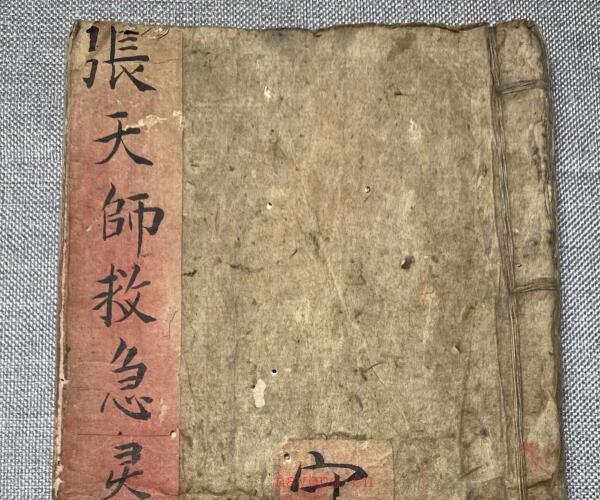 張天師救急灵